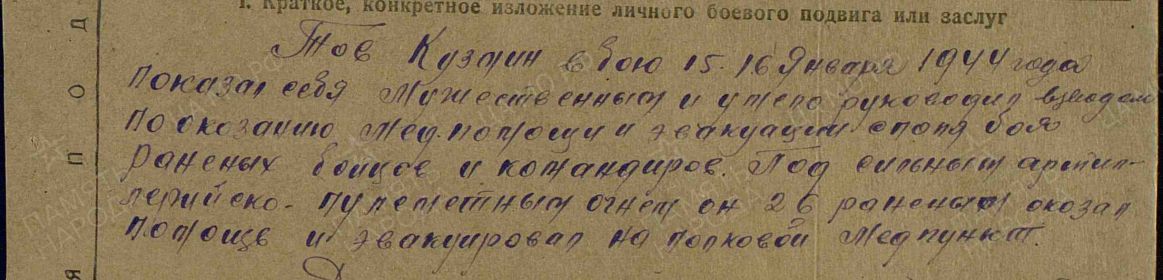 I. Краткое, конкретное изложение личного боевого подвига или заслуг
Тов Кузмин в бою 15. 16 Января 1944 года
показал себя Мужественным и умело руководил взводом
по оказанию мед.помощи и эвакуации с поля боя
раненых бойцов и командиров. Под сильным артил-
лерийско-пулеметным огнем он 26 раненым оказал
помощь и эвакуировал на полковой медпункт.
П О Д